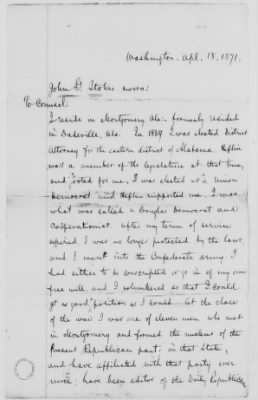 Washington, Apl. 18. 1871.
John G. Stokes, sworn:
To Counsel:
I reside in Montgomery Ala: formerly resided
in Daleville, Ala. In 1859 I was elected District
Attorney for the eastern district of Alabama. Heflin
was a member of the legislature at that time,
and voted for me. I was elected as a union
Democrat and Heflin supported me. I was
what was called a Douglas Democrat and
Cooperationist after my term of service
expired. I was no longer protected by the law,
and I went into the Confederate army. I
had either to be conscripted or go in of my own
free will, and I volunteered so that I could
get as good position as I could. At the close
of the war I was one of eleven men who met
in Montgomery and formed the nucleus of the
Present Republican part: in that State,
and have affiliated with that party ever
since; have been editor of the Daily Republican